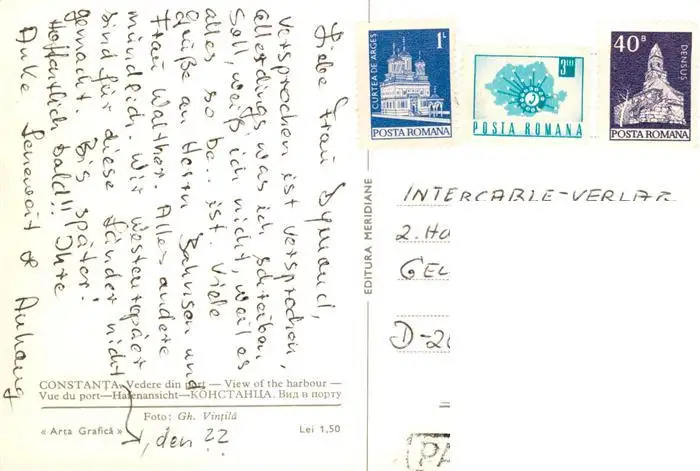 Liebe Frau Dymond,
versprochen ist versprochen,
allerdings was ich schreiben
soll, weiß ich nicht, weil es
alles so be... ist. Viele
Grüße an Herrn Bahnson und
Frau Walther. Alles andere
mündlich. Wir Westeuropäer
sind für diese Länder nicht
gemacht. Bis später!
Hoffentlich bald!! Ihre
Anke & Anhang
, den 22.
CONSTANȚA. Vedere din port — View of the harbour —
Vue du port—Hafenansicht—КОНСТАНЦА. Вид в порту
Foto: Gh. Vințilă
« Arta Grafică »
Lei 1,50
EDITURA MERIDIANE
1L
CURTEA DE ARGEȘ
POSTA ROMANA
3 LEI
POSTA ROMANA
40 B
DENSUȘ
POSTA ROMANA
INTERCABLE-VERLAG
2. Ho
GEL
D-20
PA